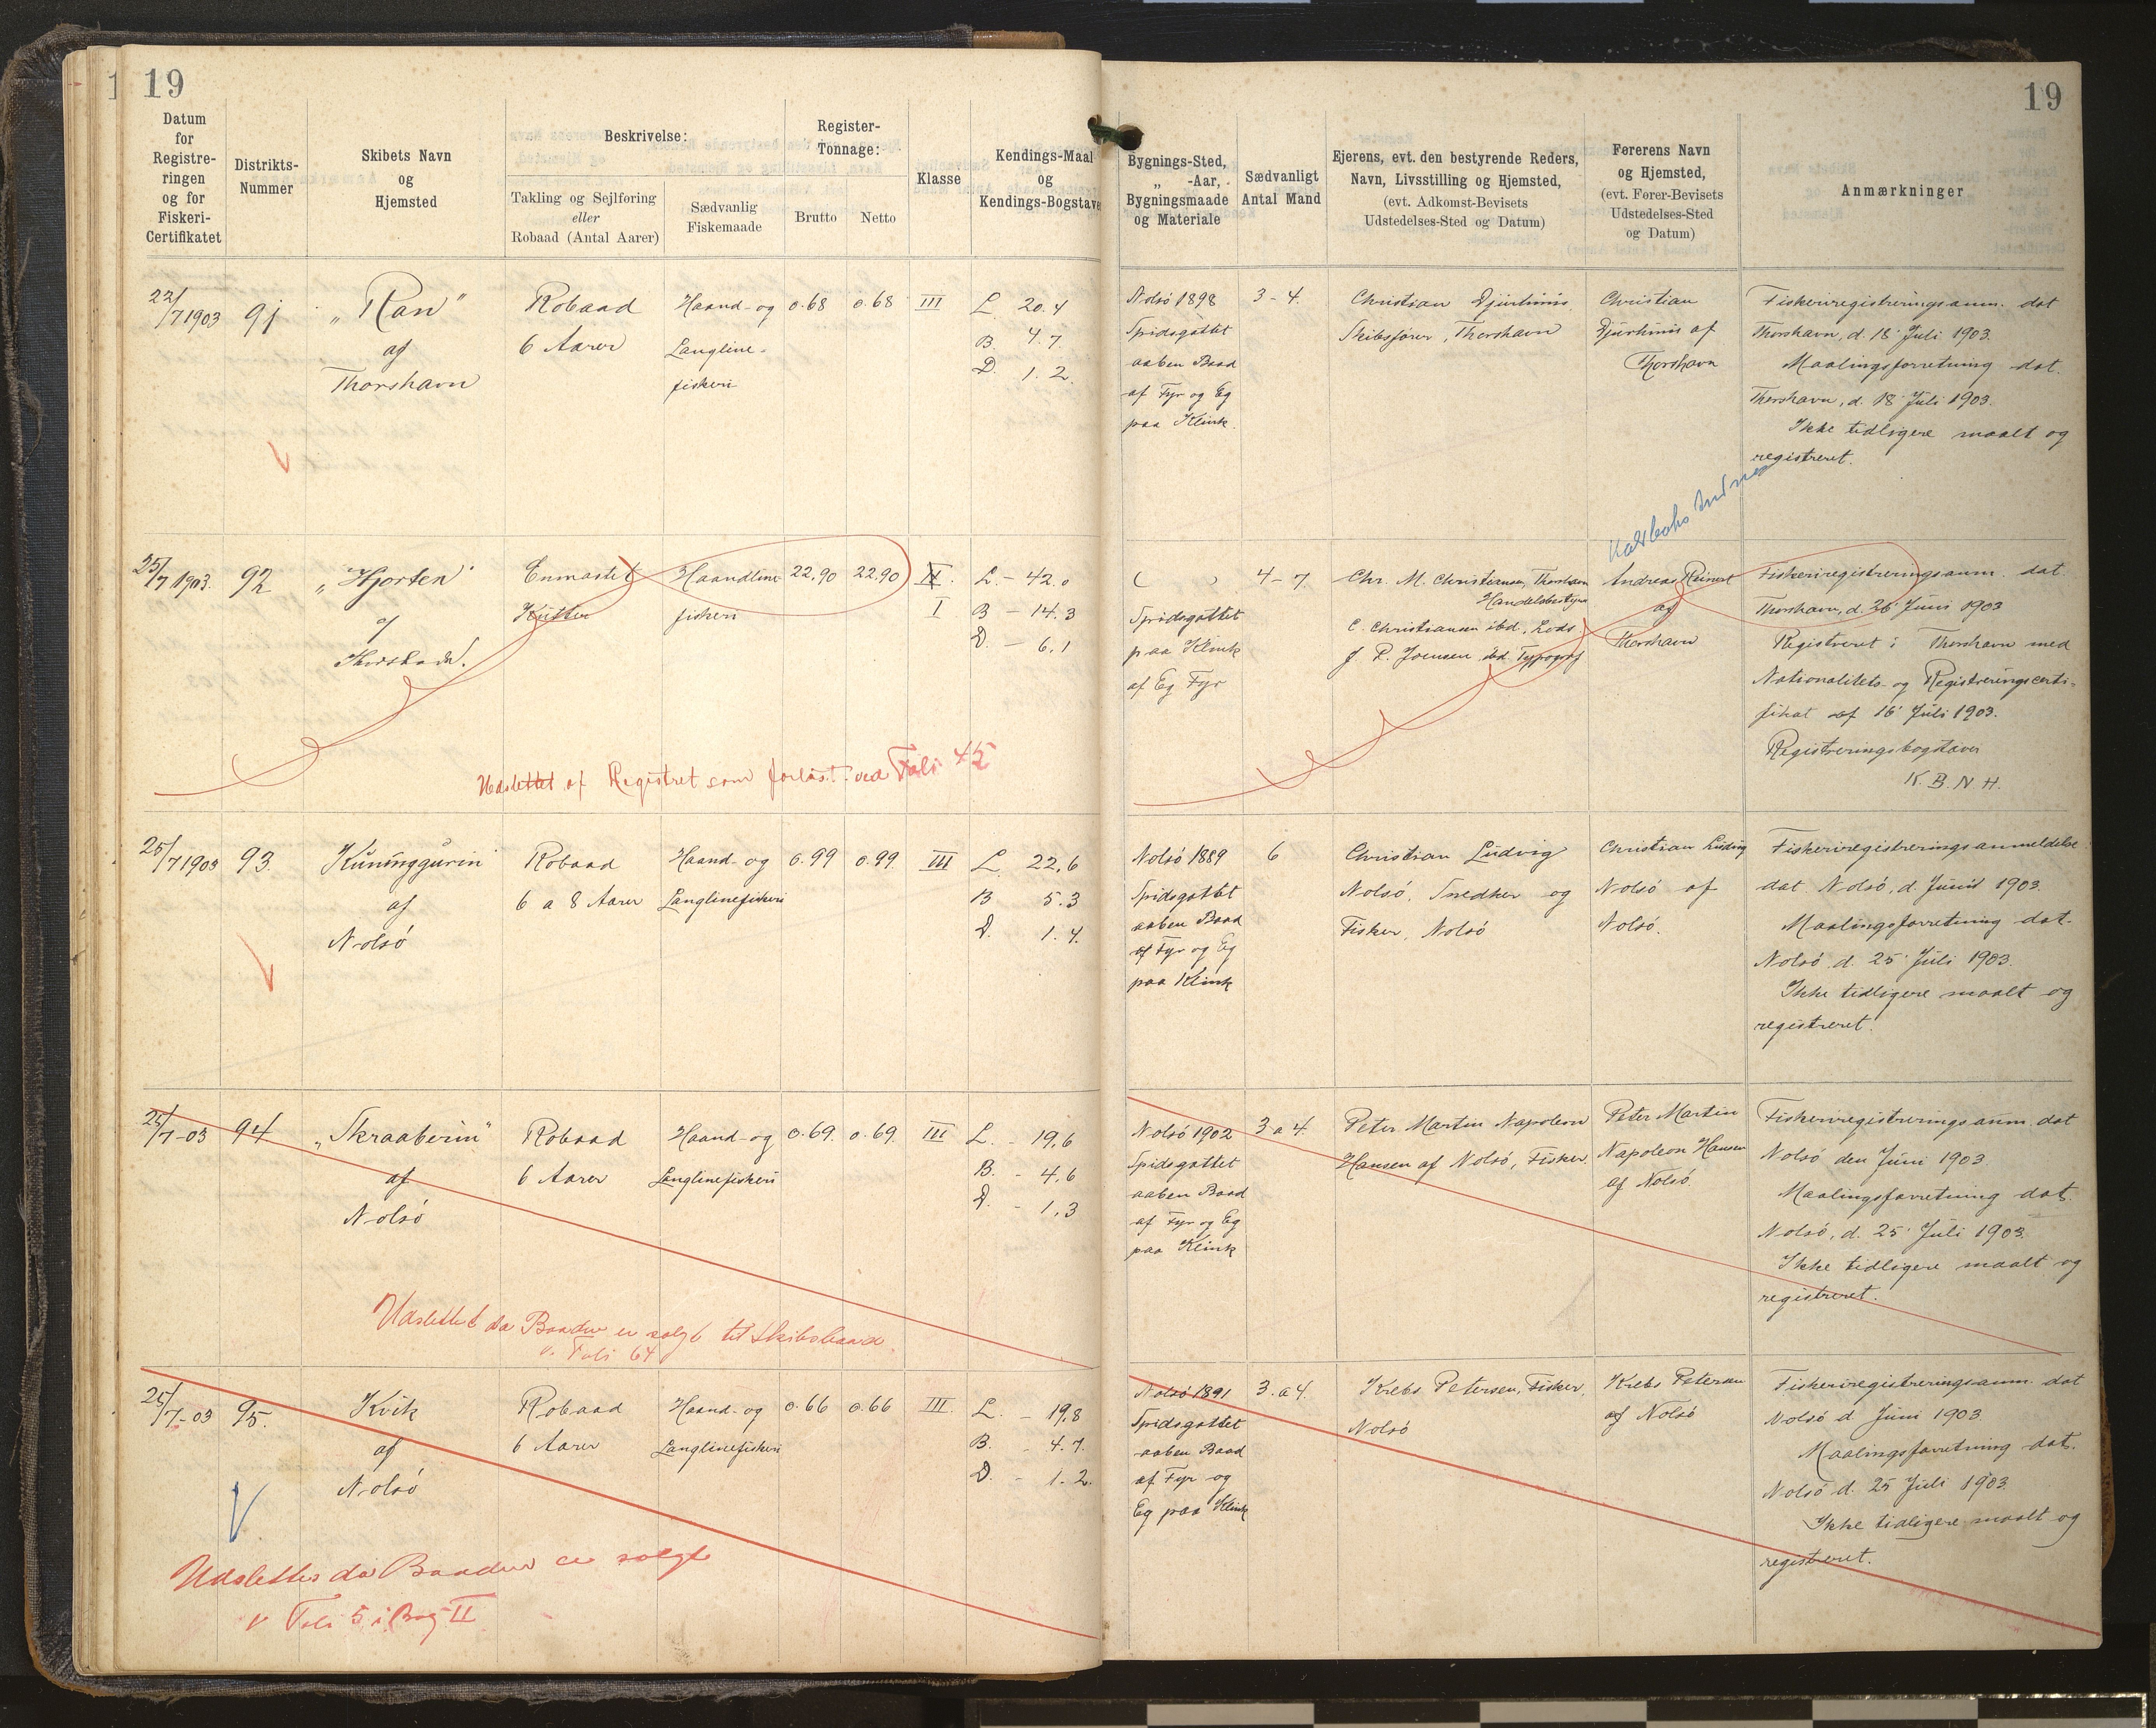 19
Datum
for
Registre-
ringen
og for
Fiskeri-
Certifikatet
Distrikts-
Nummer
Skibets Navn
og
Hjemsted
Beskrivelse:
Takling og Sejlføring
eller
Robaad (Antal Aarer)
Sædvanlig
Fiskemaade
Register-
Tonnage:
Brutto
Netto
Klasse
Kendings-Maal
og
Kendings-Bogstaver
Bygnings-Sted,
„ -Aar,
Bygningsmaade
og Materiale
Sædvanligt
Antal Mand
Ejerens, evt. den bestyrende Reders,
Navn, Livsstilling og Hjemsted,
(evt. Adkomst-Bevisets
Udstedelses-Sted og Datum)
Førerens Navn
og Hjemsted,
(evt. Fører-Bevisets
Udstedelses-Sted
og Datum)
Anmærkninger
19
22/7 1903
91
„Ran"
af
Thorshavn
Robaad
6 Aarer
Haand- og
Langline-
fiskeri
0.68
0.68
III
L. 20.4
B. 4.7
D. 1.2.
Nolsö 1898
Spidsgattet
aaben Baad
af Fyr og Eg
paa Klink.
3-4.
Christian Djurhuus
Skibsfører, Thorshavn
Christian
Djurhuus af
Thorshavn
Fiskeriregistreringsanm. dat
Thorshavn, d. 18' Juli 1903.
Maalingsforretning dat.
Thorshavn, d. 18' Juli 1903.
Ikke tidligere maalt og
registreret.
25/7 1903.
92
„Hjorten"
af
Thorshavn.
Enmastet
Kutter
Haandline
fiskeri
22,90
22.90
I
L. - 42.0
B - 14.3
D. - 6,1
( )
Spidsgattet
paa Klink
af Eg Fyr
4-7.
Chr. M. Christiansen, Thorshavn
Handelsbestyrer
C. Christiansen ibd., Lods
J. P. Joensen ibd. Typograf
Andreas Reinert
af
Thorshavn
Fiskeriregistreringsanm. dat
Thorshavn, d. 26' Juni 1903
Registreret i Thorshavn med
Nationalitets- og Registreringscerti-
fikat af 16' Juli 1903.
Registreringsbogstaver
K. B. N H.
Udslettet af Registret som forlist. ved Foli 45
25/7 1903
93.
Kúninggúrin
af
Nolsö
Robaad
6 a 8 Aarer
Haand- og
Langlinefiskeri
0.99
0.99.
III
L. 22,6
B 5.3
D. 1.4.
Nolsö 1889
Spidsgattet
aaben Baad
af Fyr og Eg
paa Klink
6
Christian Ludvig
Nolsö, Snedker og
Fisker, Nolsö
Christian Ludvig
Nolsö af
Nolsö.
Fiskeriregistreringsanmeldelse
dat. Nolsö, d. Juni 1903.
Maalingsforretning dat.
Nolsö d. 25' Juli 1903.
Ikke tidligere maalt og
registreret.
25/7-03
94
„Skraaberin"
af
Nolsö
Robaad
6 Aarer
Haand- og
Langlinefiskeri
0.69.
0.69.
III
L. - 19,6
B. - 4,6
D. - 1,3
Nolsö 1902
Spidsgattet
aaben Baad
af Fyr og Eg
paa Klink
3 a 4.
Peter Martin Napoleon
Hansen af Nolsö, Fisker.
Peter Martin
Napoleon Hansen
af Nolsö.
Fiskeriregistreringsanm. dat
Nolsö den Juni 1903
Maalingsforretning dat.
Nolsö, d. 25' Juli 1903.
Ikke tidligere maalt og
registreret.
Udslettet da Baaden er solgt til Skibsbaad.
v. Foli 64
25/7-03
95.
Kvik
af
Nolsö
Robaad
6 Aarer
Haand- og
Langlinefiskeri
0.66
0.66
III.
L. - 19,8
B. - 4.7.
D. - 1.2.
Nolsö 1891
Spidsgattet
aaben Baad
af Fyr og
Eg paa Klink
3. a 4.
Krebs Petersen, Fisker,
Nolsö
Krebs Petersen
af Nolsö
Fiskeriregistreringsanm. dat
Nolsö d. Juni 1903.
Maalingsforretning dat.
Nolsö d. 25 Juli 1903.
Ikke tidligere maalt og
registreret.
Udslettes da Baaden er solgt
v Foli 5 i Bog II